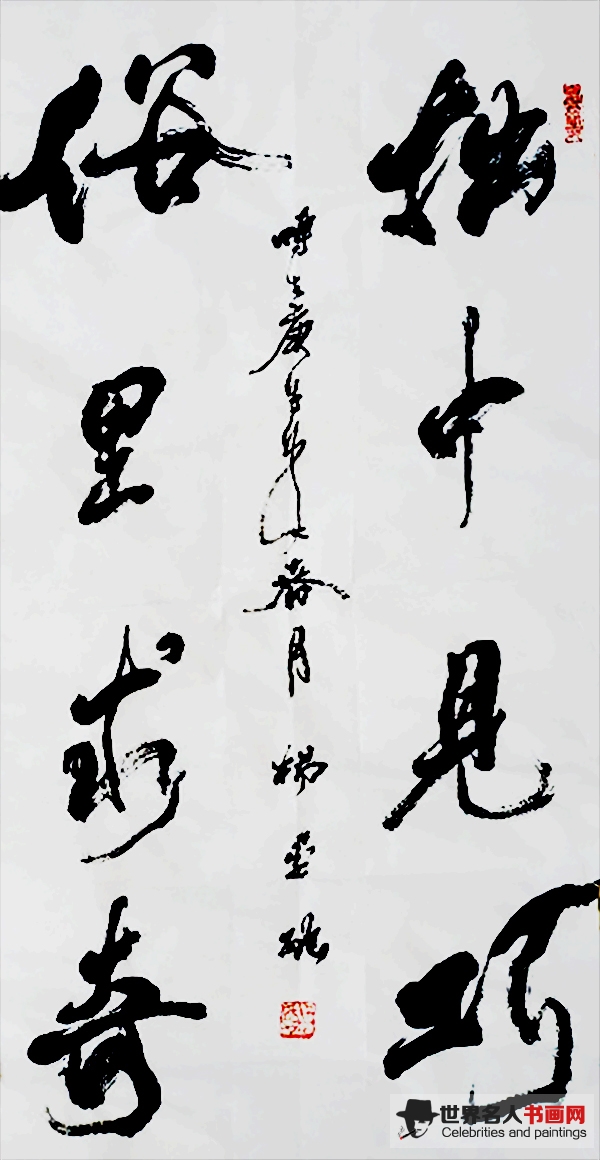 拙中见巧
俗里求奇
春月 杨
世界名人书画网
Celebrities and paintings